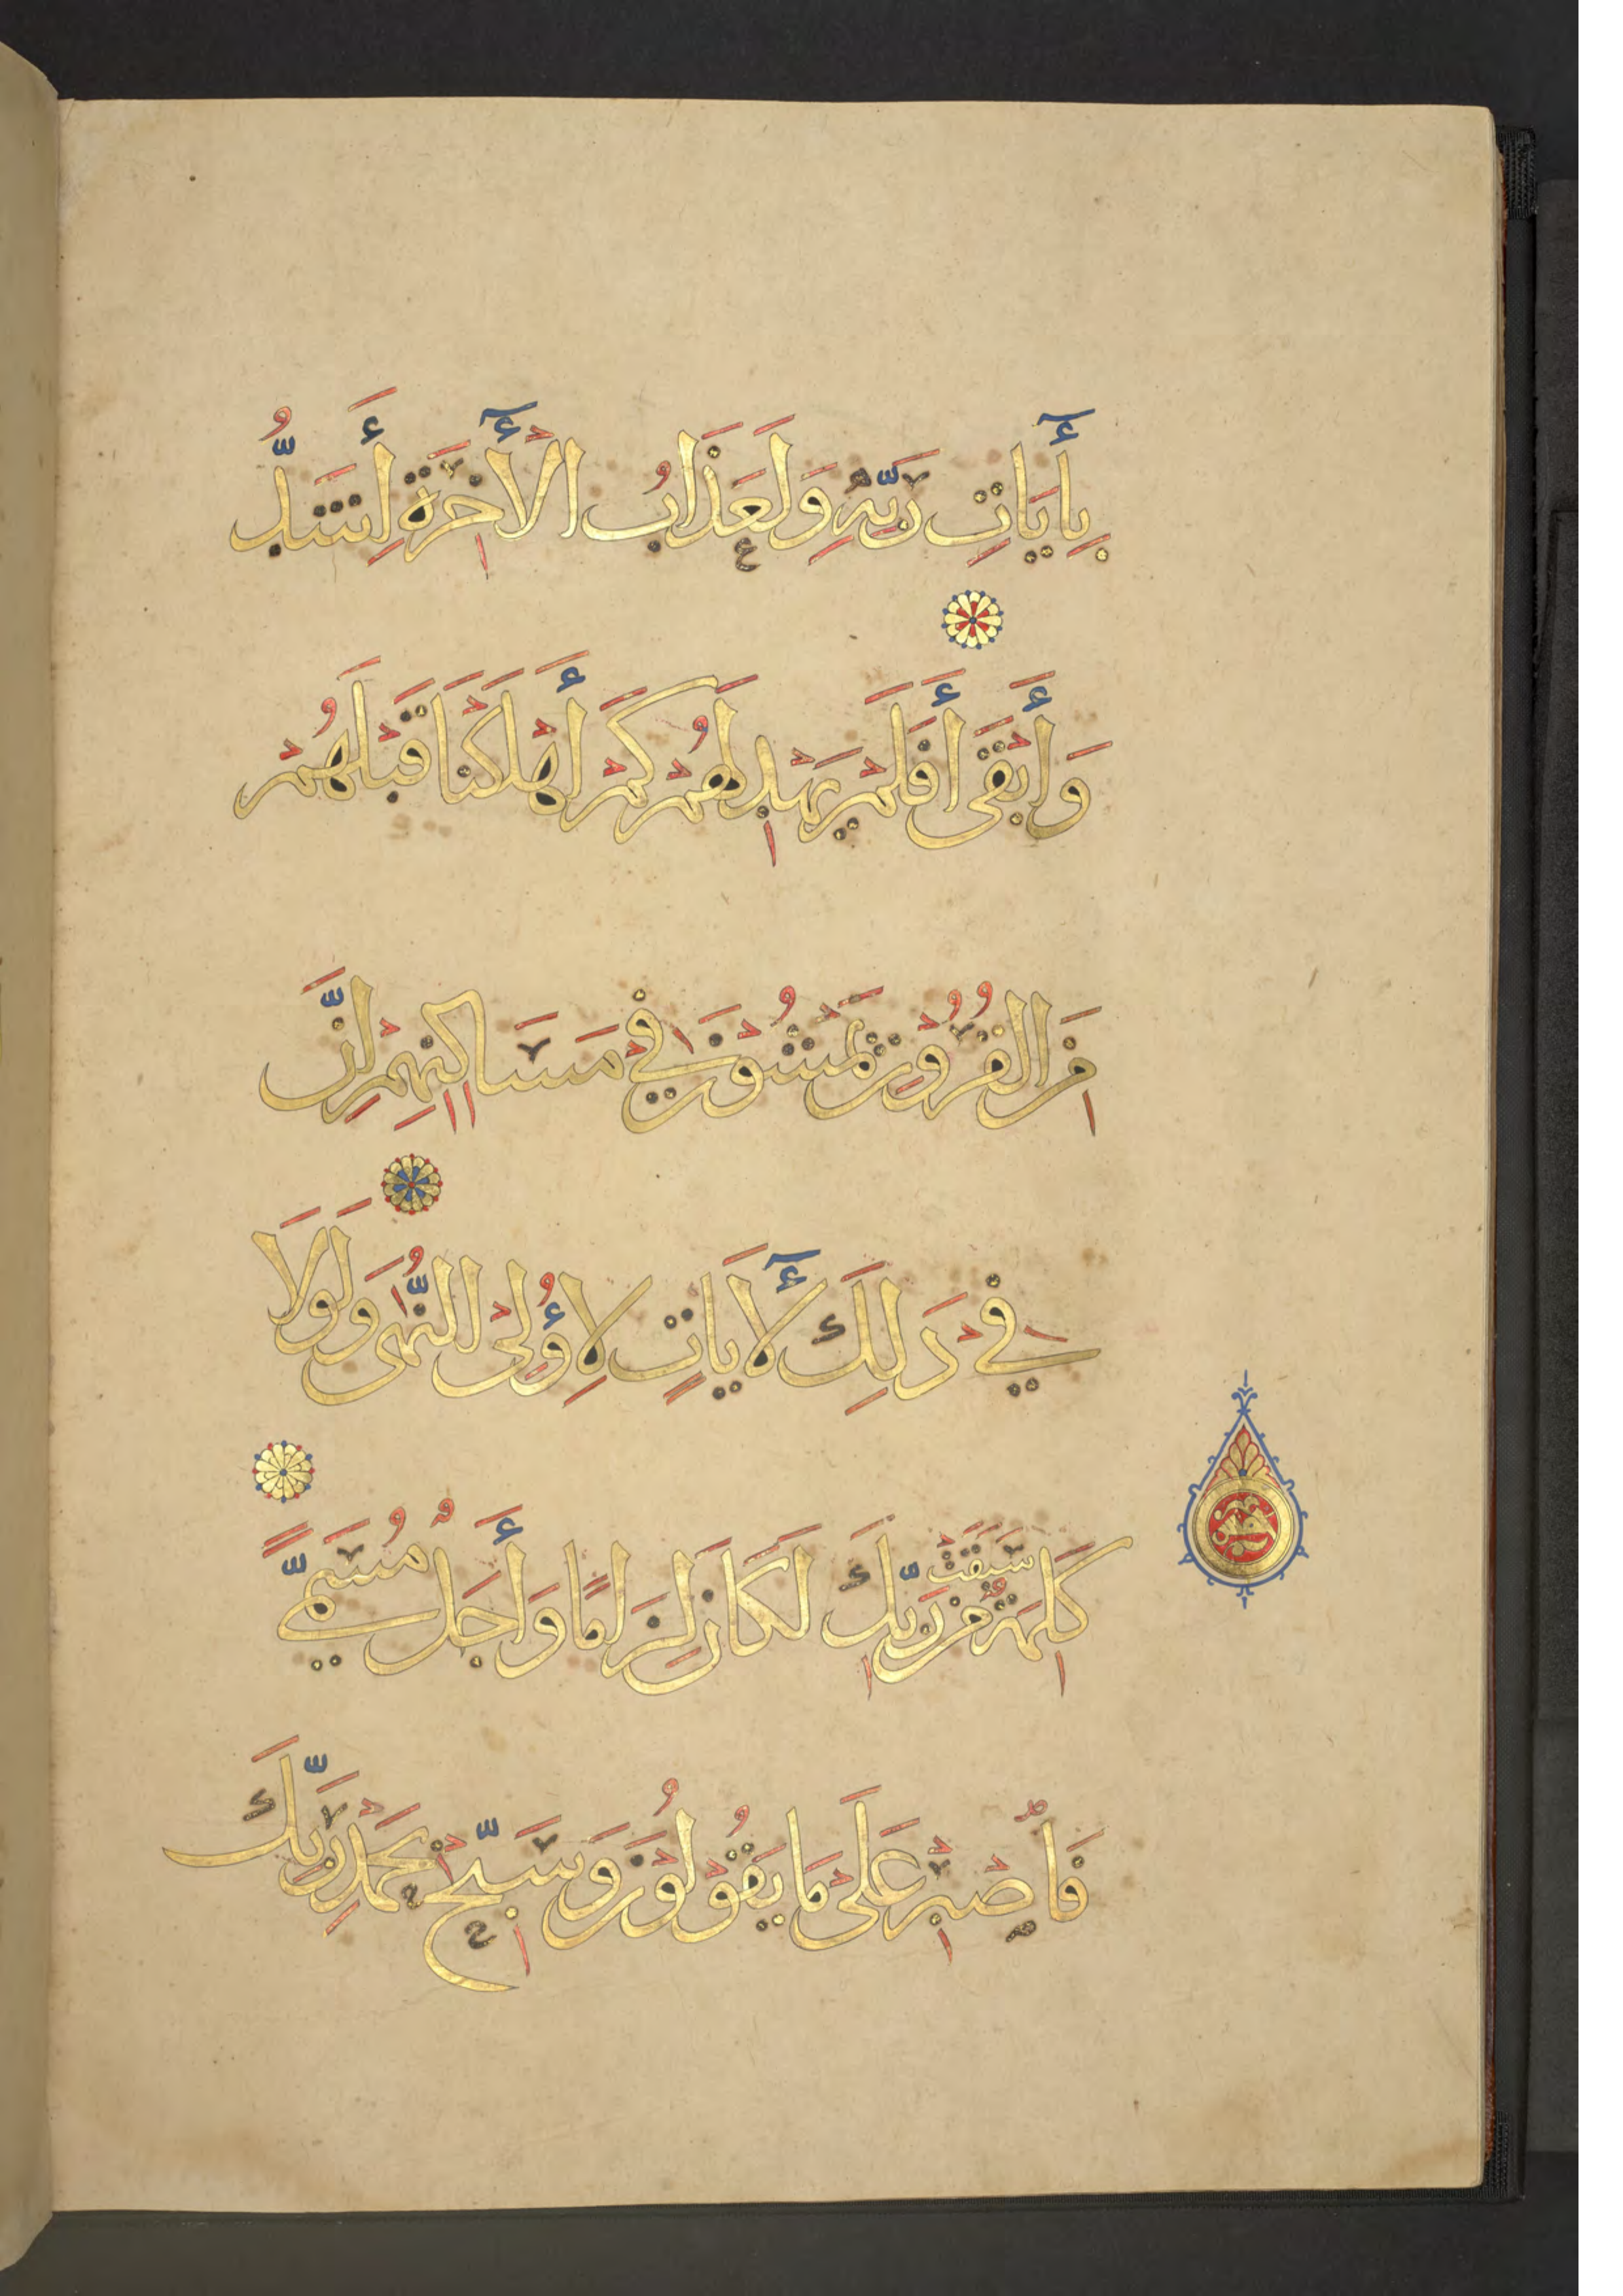 بِأَيَاتِ رَبِّهِ وَلَعَذَابُ الْأَخِرَةِ أَشَدُّ
وَأَبْقَى أَفَلَمْ يَهْدِ لَهُمْ كَمْ أَهْلَكْنَا قَبْلَهُمْ
مِنَ الْقُرُونِ يَمْشُونَ فِي مَسَاكِنِهِمْ إِنَّ
فِي ذَلِكَ لَأَيَاتٍ لِأُولِى النُّهَى وَلَوْلَا
كَلِمَةٌ سَبَقَتْ مِنْ رَبِّكَ لَكَانَ لِزَامًا وَأَجَلٌ مُسَمًّى
فَاصْبِرْ عَلَى مَا يَقُولُونَ وَسَبِّحْ بِحَمْدِ رَبِّكَ